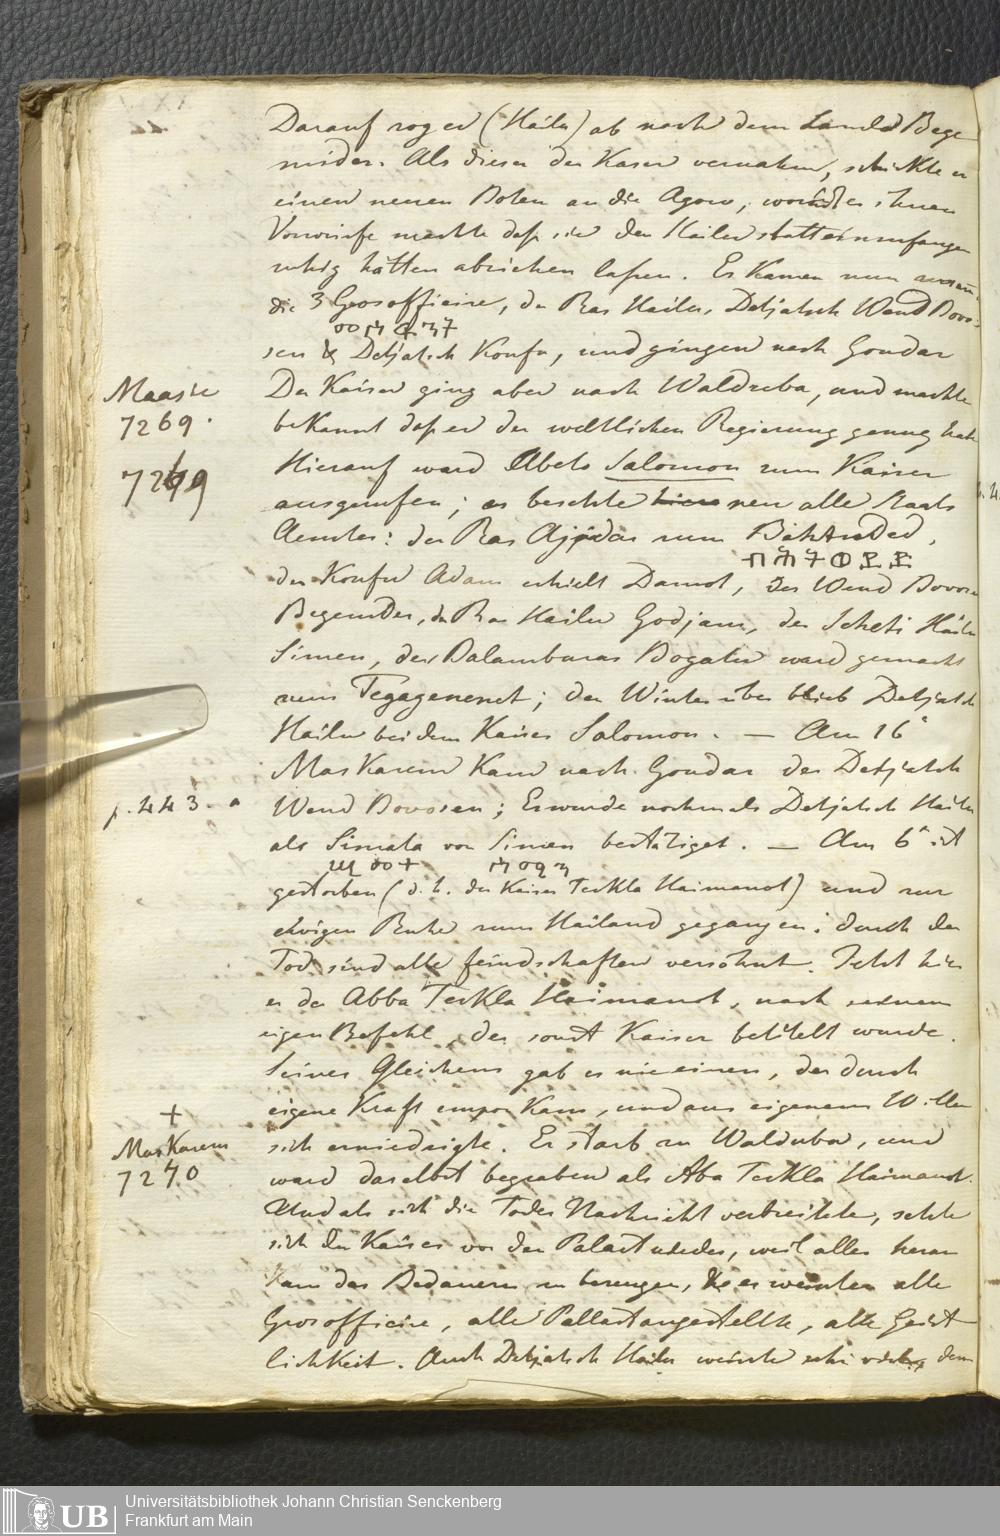 Darauf zog er (Hailu) ab nach dem Lande Bege
mider. Als dieses der Kaiser vernahm, schickte er
einen neuen Boten an die Agow, worin er ihnen
Vorwürfe machte daß sie den Hailu statt einzufangen
ruhig hätten abziehen laßen. Es kamen nun
die 3 Grosofficire, der Ras Hailu, Detjatsch Wend Bovo
sen & Detjatsch Konfu, und gingen nach Gondar
Maasie
7269.
Der Kaiser ging aber nach Waldubba, und machte
bekannt daß er der weltlichen Regierung genug habe
7269
Hierauf ward Abeto Salomon zum Kaiser
ausgerufen; er besetzte neu alle Staats
Aemter: der Ras Ajadar zum Bihtwded,
der Konfu Adam erhielt Damot, der Wend Bovosen
Begemder, der Ras Hailu Godjam, der Scheti Hailu
Simen, der Balambaras Bogalu ward gemacht
zum; den Winter über blieb Detjatsch
Hailu bei dem Kaiser Salomon. — Am 16t
Maskarem kam nach Gondar der Detjatsch
p. 443. a
Wend Bovosen; Er wurde nochmals Detjatsch Hailu
als Simata von Simen bestätiget. — Am 6t ist
gestorben (d. h. der Kaiser Teckla Haimanot) und zur
ewigen Ruhe zum Heiland gegangen: durch den
Tod sind alle feindschaften versöhnt. Jetzt hies
er der Abba Teckla Haimanot, nach seinem
eigen Befehl, der sonst Kaiser betitelt wurde.
Seines Gleichens gab es nie einen, der durch
eigene Kraft empor kam, und aus eigenem Willen
+
Maskarem
7270
sich erniedrigte. Er starb zu Waldubba, und
ward daselbst begraben als Aba Teckla Haimanot.
Und als sich die Todes Nachricht verbreitete, setzte
sich der Kaiser vor den Palast nieder, weil alles heran
kam das Bedauern zu bezeugen, es weinten alle
Grosofficire, alle Pallastangestellte, alle Geist
lichkeit. Auch Detjatsch Hailu weinte sehr denn
UB
Universitätsbibliothek Johann Christian Senckenberg
Frankfurt am Main